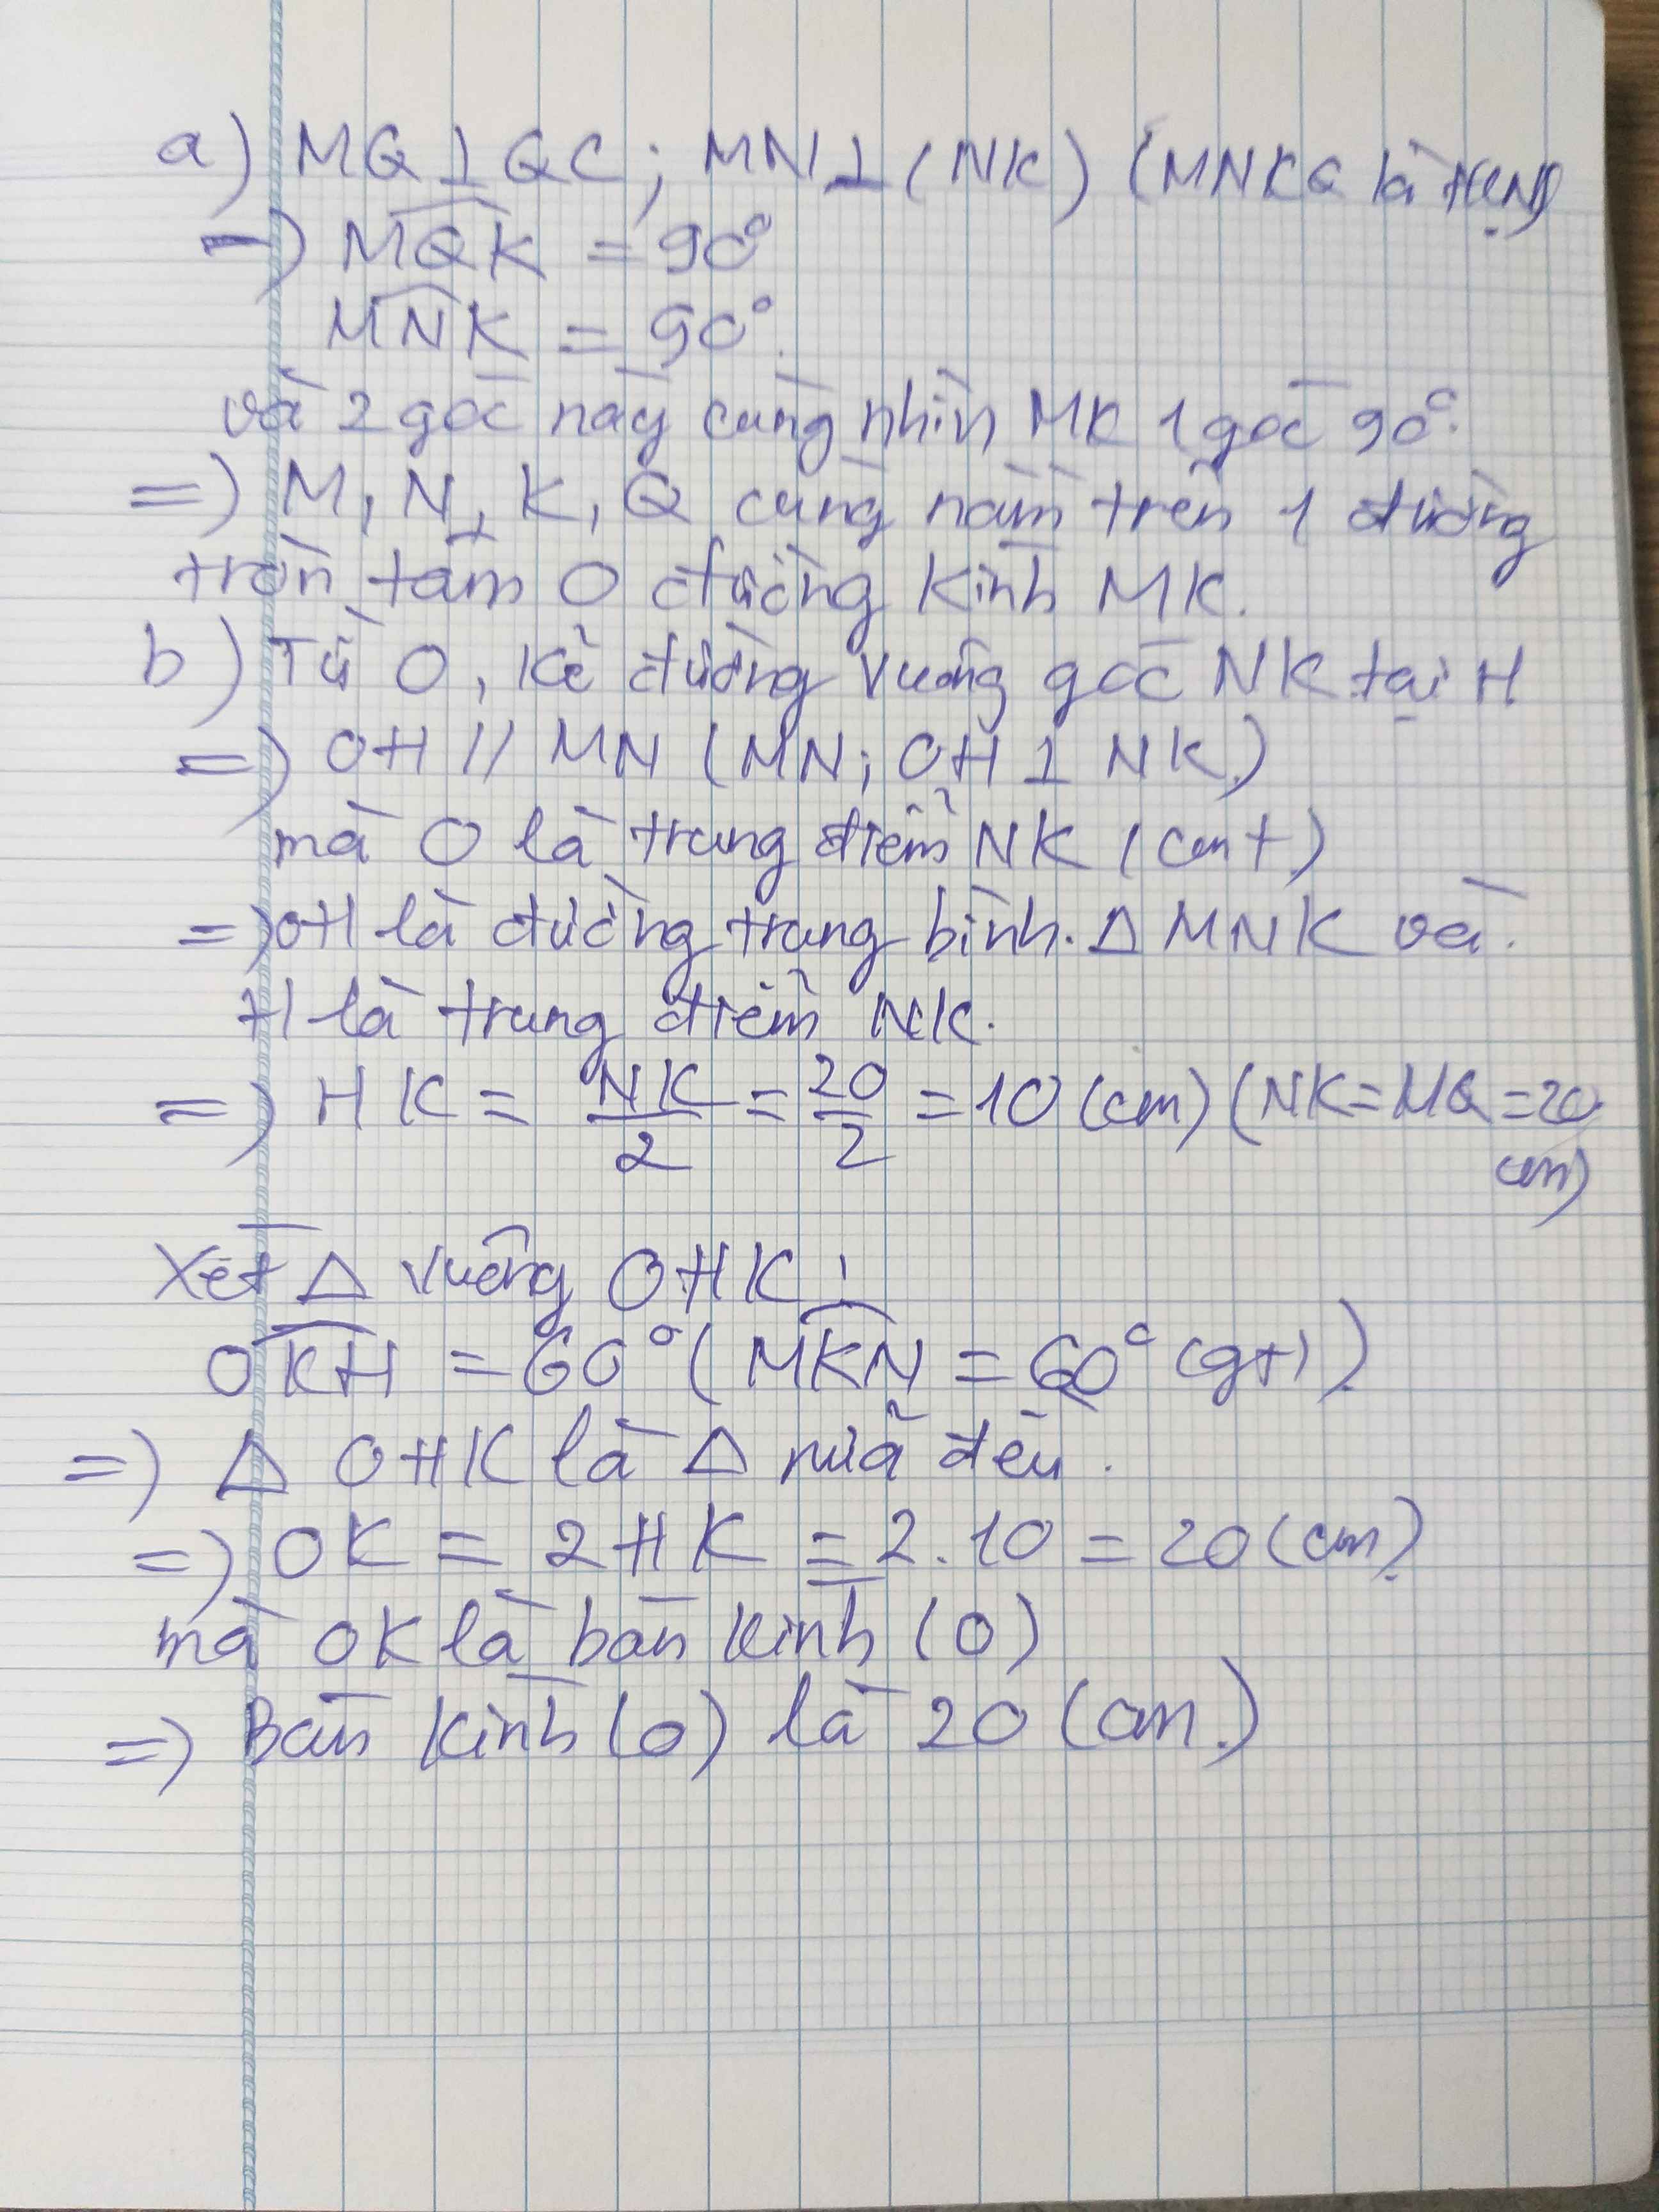 a) MQ ⊥ QC ; MN ⊥ (NK) (MNKQ là HCN)
=) MQK = 90°
MNK = 90°.
và 2 góc này cùng nhìn MK 1 góc 90°.
=) M, N, K, Q cùng nằm trên 1 đường
tròn tâm O đường kính MK.
b) Từ O, kẻ đường vuông góc NK tại H
=) OH // MN (MN; OH ⊥ NK)
mà O là trung điểm NK (cmt)
=) OH là đường trung bình. Δ MNK và.
H là trung điểm NK.
=) HK = NK/2 = 20/2 = 10 (cm) (NK = MQ = 20
cm)
Xét Δ vuông OHK :
OKH = 60° (MKN = 60° (gt))
=) Δ OHK là Δ nửa đều.
=) OK = 2HK = 2.10 = 20 (cm)
mà OK là bán kính (O)
=) Bán kính (O) là 20 (cm.)